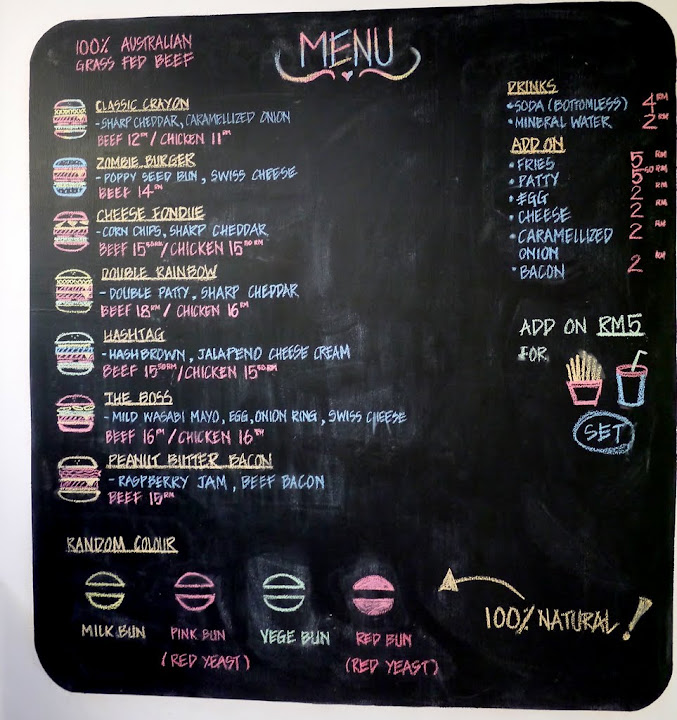 100% AUSTRALIAN
GRASS FED BEEF
MENU
CLASSIC CRAYON
-SHARP CHEDDAR, CARAMELLIZED ONION
BEEF 12RM / CHICKEN 11RM
ZOMBIE BURGER
-POPPY SEED BUN, SWISS CHEESE
BEEF 14RM
CHEESE FONDUE
-CORN CHIPS, SHARP CHEDDAR
BEEF 15.50RM / CHICKEN 15.50RM
DOUBLE RAINBOW
-DOUBLE PATTY, SHARP CHEDDAR
BEEF 18RM / CHICKEN 16RM
HASHTAG
-HASHBROWN, JALAPENO CHEESE CREAM
BEEF 15.50RM / CHICKEN 15.50RM
THE BOSS
-MILD WASABI MAYO, EGG, ONION RING, SWISS CHEESE
BEEF 16RM / CHICKEN 16RM
PEANUT BUTTER BACON
-RASPBERRY JAM, BEEF BACON
BEEF 15RM
DRINKS
•SODA (BOTTOMLESS) 4RM
•MINERAL WATER 2RM
ADD ON
•FRIES 5RM
•PATTY 5.50RM
•EGG 2RM
•CHEESE 2RM
•CARAMELLIZED 2RM
ONION
•BACON 2RM
ADD ON RM5
FOR
SET
RANDOM COLOUR
MILK BUN
PINK BUN
(RED YEAST)
VEGE BUN
RED BUN
(RED YEAST)
100% NATURAL!